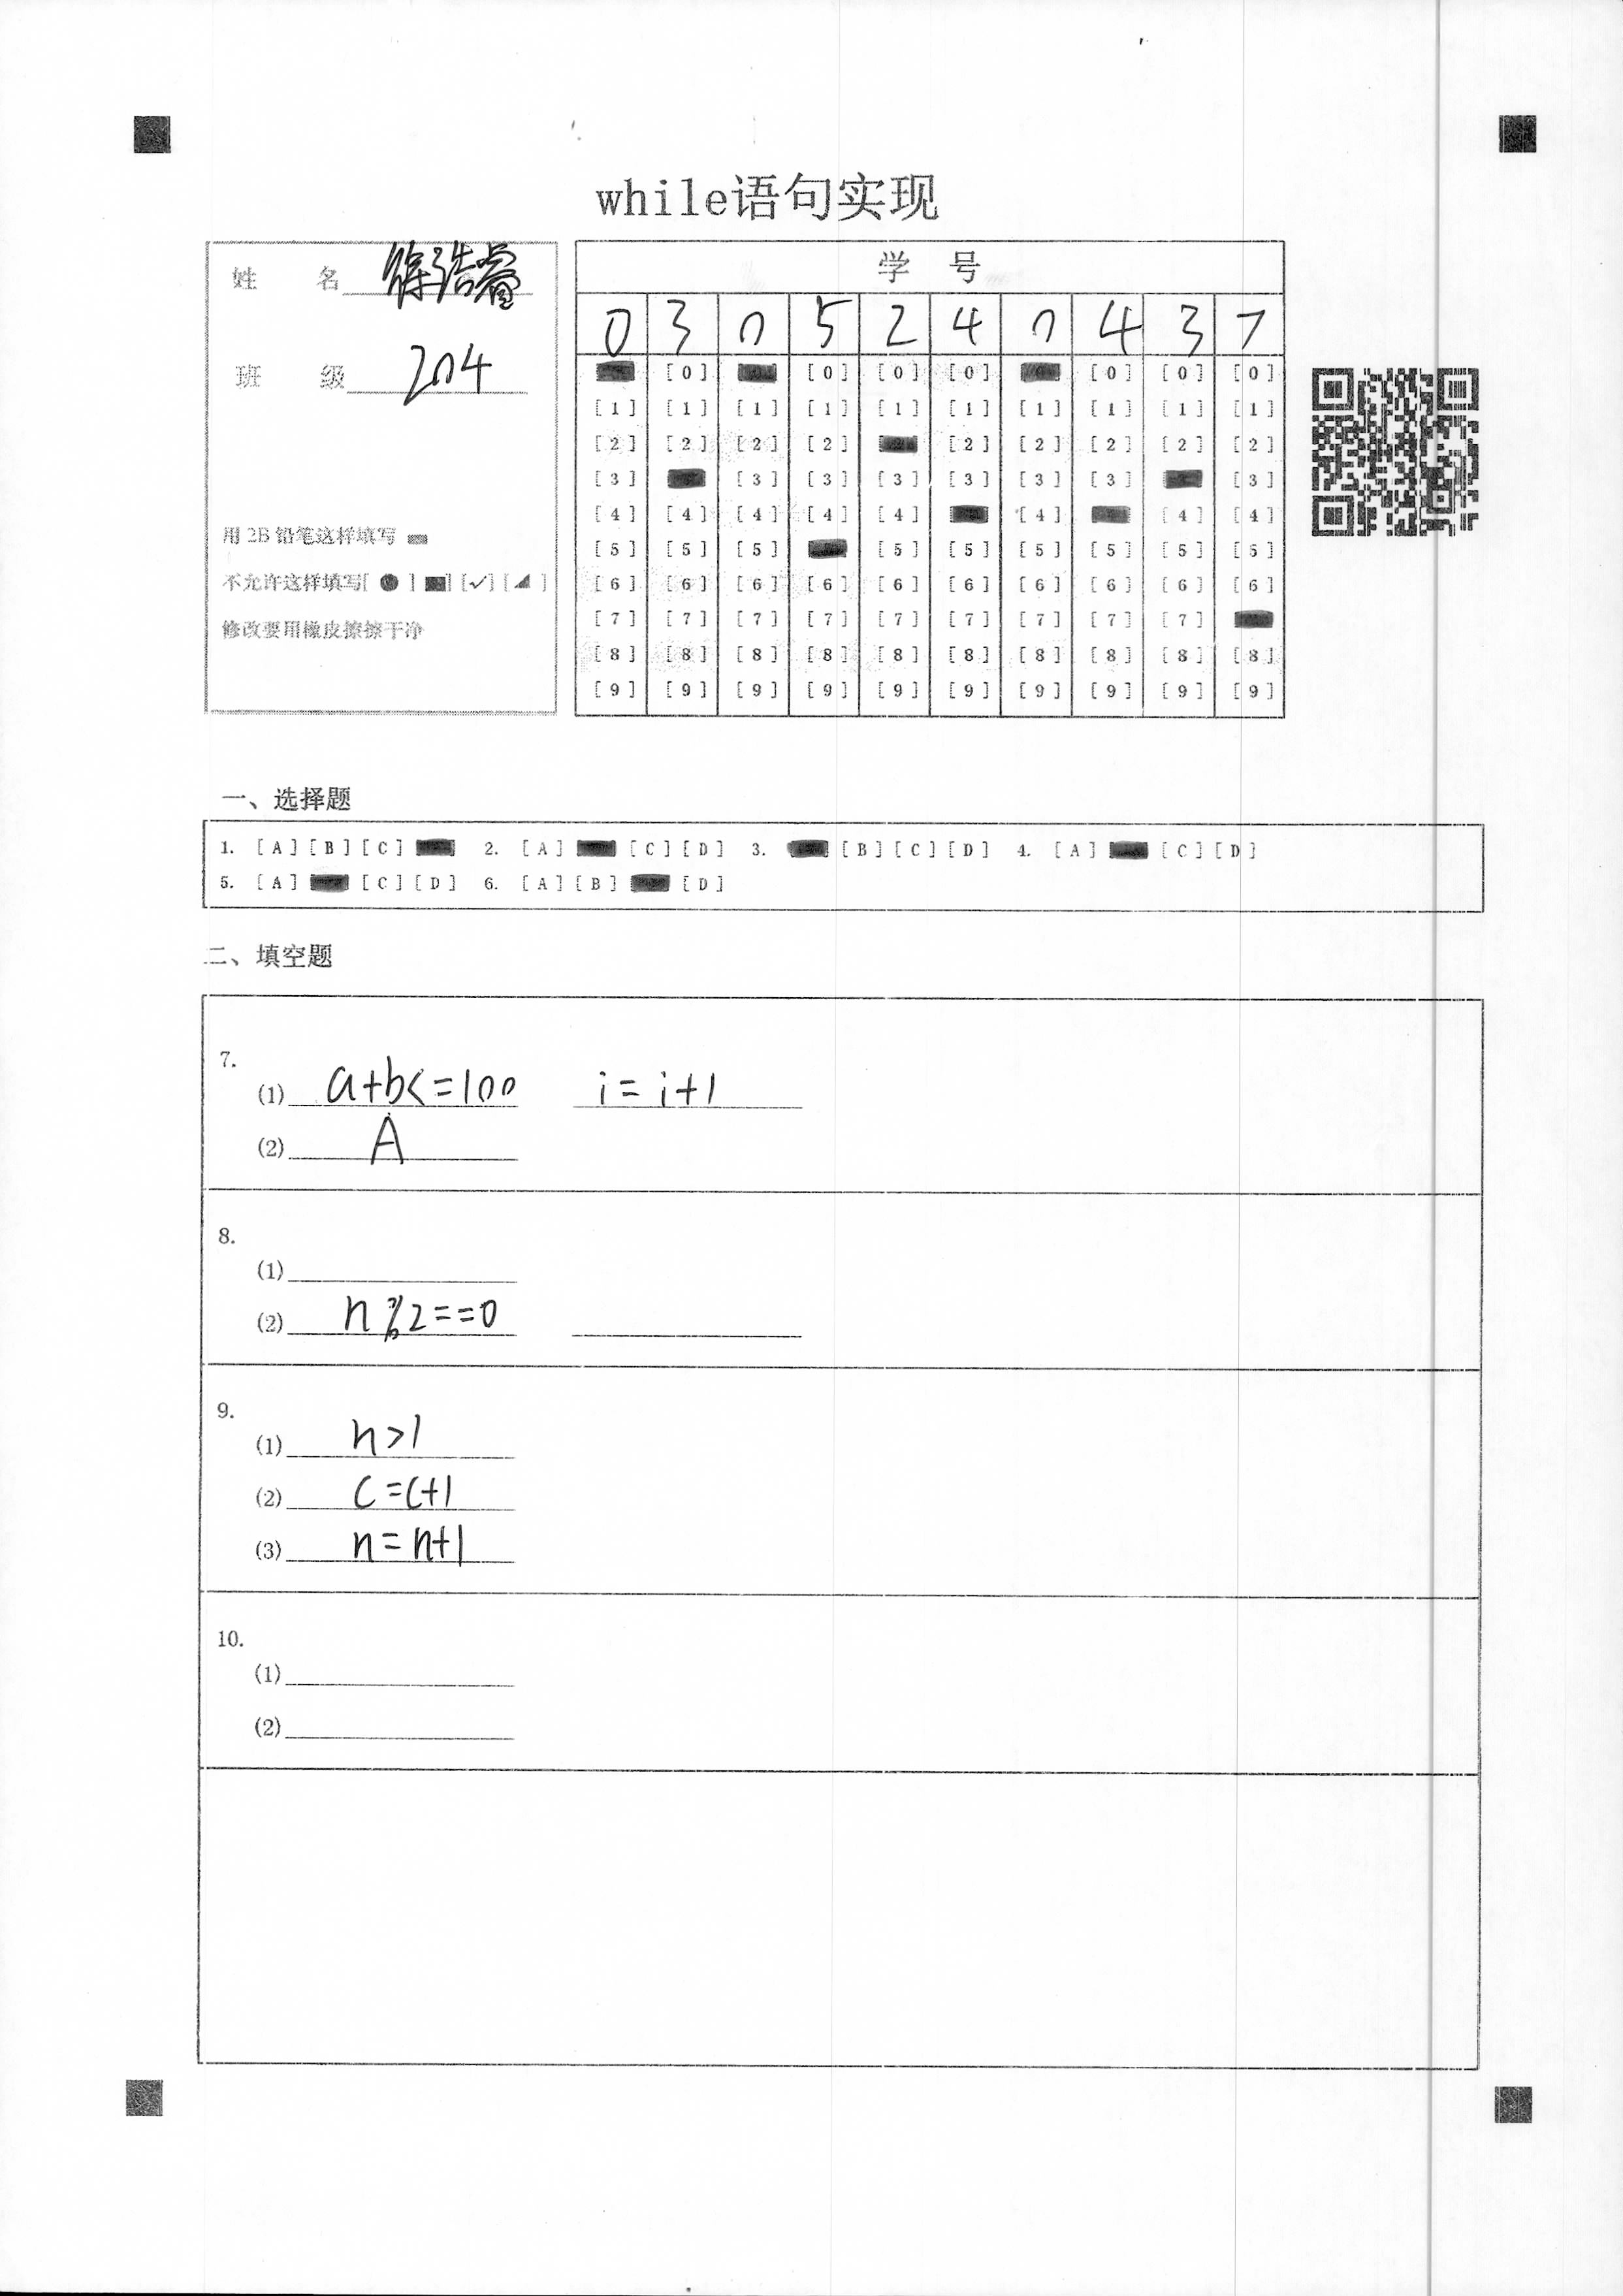 while语句实现
姓 名 徐浩睿
班 级 204
用 2B 铅笔这样填写
不允许这样填写[ ● ] [■] [✓] [◢ ]
修改要用橡皮擦擦干净
学 号
0 3 0 5 2 4 0 4 3 7
[0] [0] [0] [0] [0] [0] [0]
[1] [1] [1] [1] [1] [1] [1] [1] [1] [1]
[2] [2] [2] [2] [2] [2] [2] [2] [2]
[3] [3] [3] [3] [3] [3] [3] [3]
[4] [4] [4] [4] [4] [4] [4] [4]
[5] [5] [5] [5] [5] [5] [5] [5] [5]
[6] [6] [6] [6] [6] [6] [6] [6] [6] [6]
[7] [7] [7] [7] [7] [7] [7] [7] [7]
[8] [8] [8] [8] [8] [8] [8] [8] [8] [8]
[9] [9] [9] [9] [9] [9] [9] [9] [9] [9]
一、选择题
1. [A] [B] [C] 2. [A] [C] [D] 3. [B] [C] [D] 4. [A] [C] [D]
5. [A] [C] [D] 6. [A] [B] [D]
二、填空题
7.
(1) a+b<=100 i=i+1
(2) A
8.
(1)
(2) n%2==0
9.
(1) n>1
(2) c=c+1
(3) n=n+1
10.
(1)
(2)